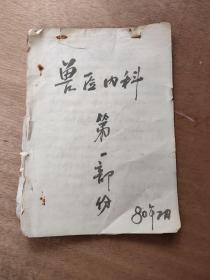 兽医内科
第一部份
80年2月